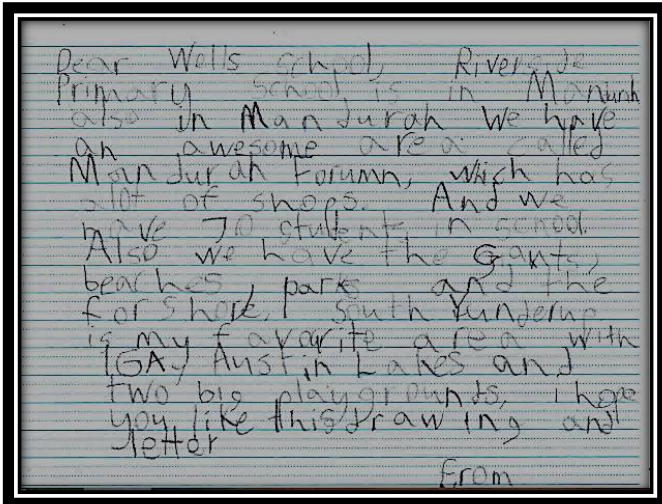 Dear Wells school, Riverside
Primary School is in Mandurah
also in Mandurah We have
an awesome area called
Mandurah Forumn, which has
alot of shops. And we
have 70 students in school.
Also we have the Giants,
beaches, parks and the
forshore, South Yunderup
is my favourite area with
IGA, Austin Lakes and
two big playgrounds, i hope
you like this drawing and
letter
From